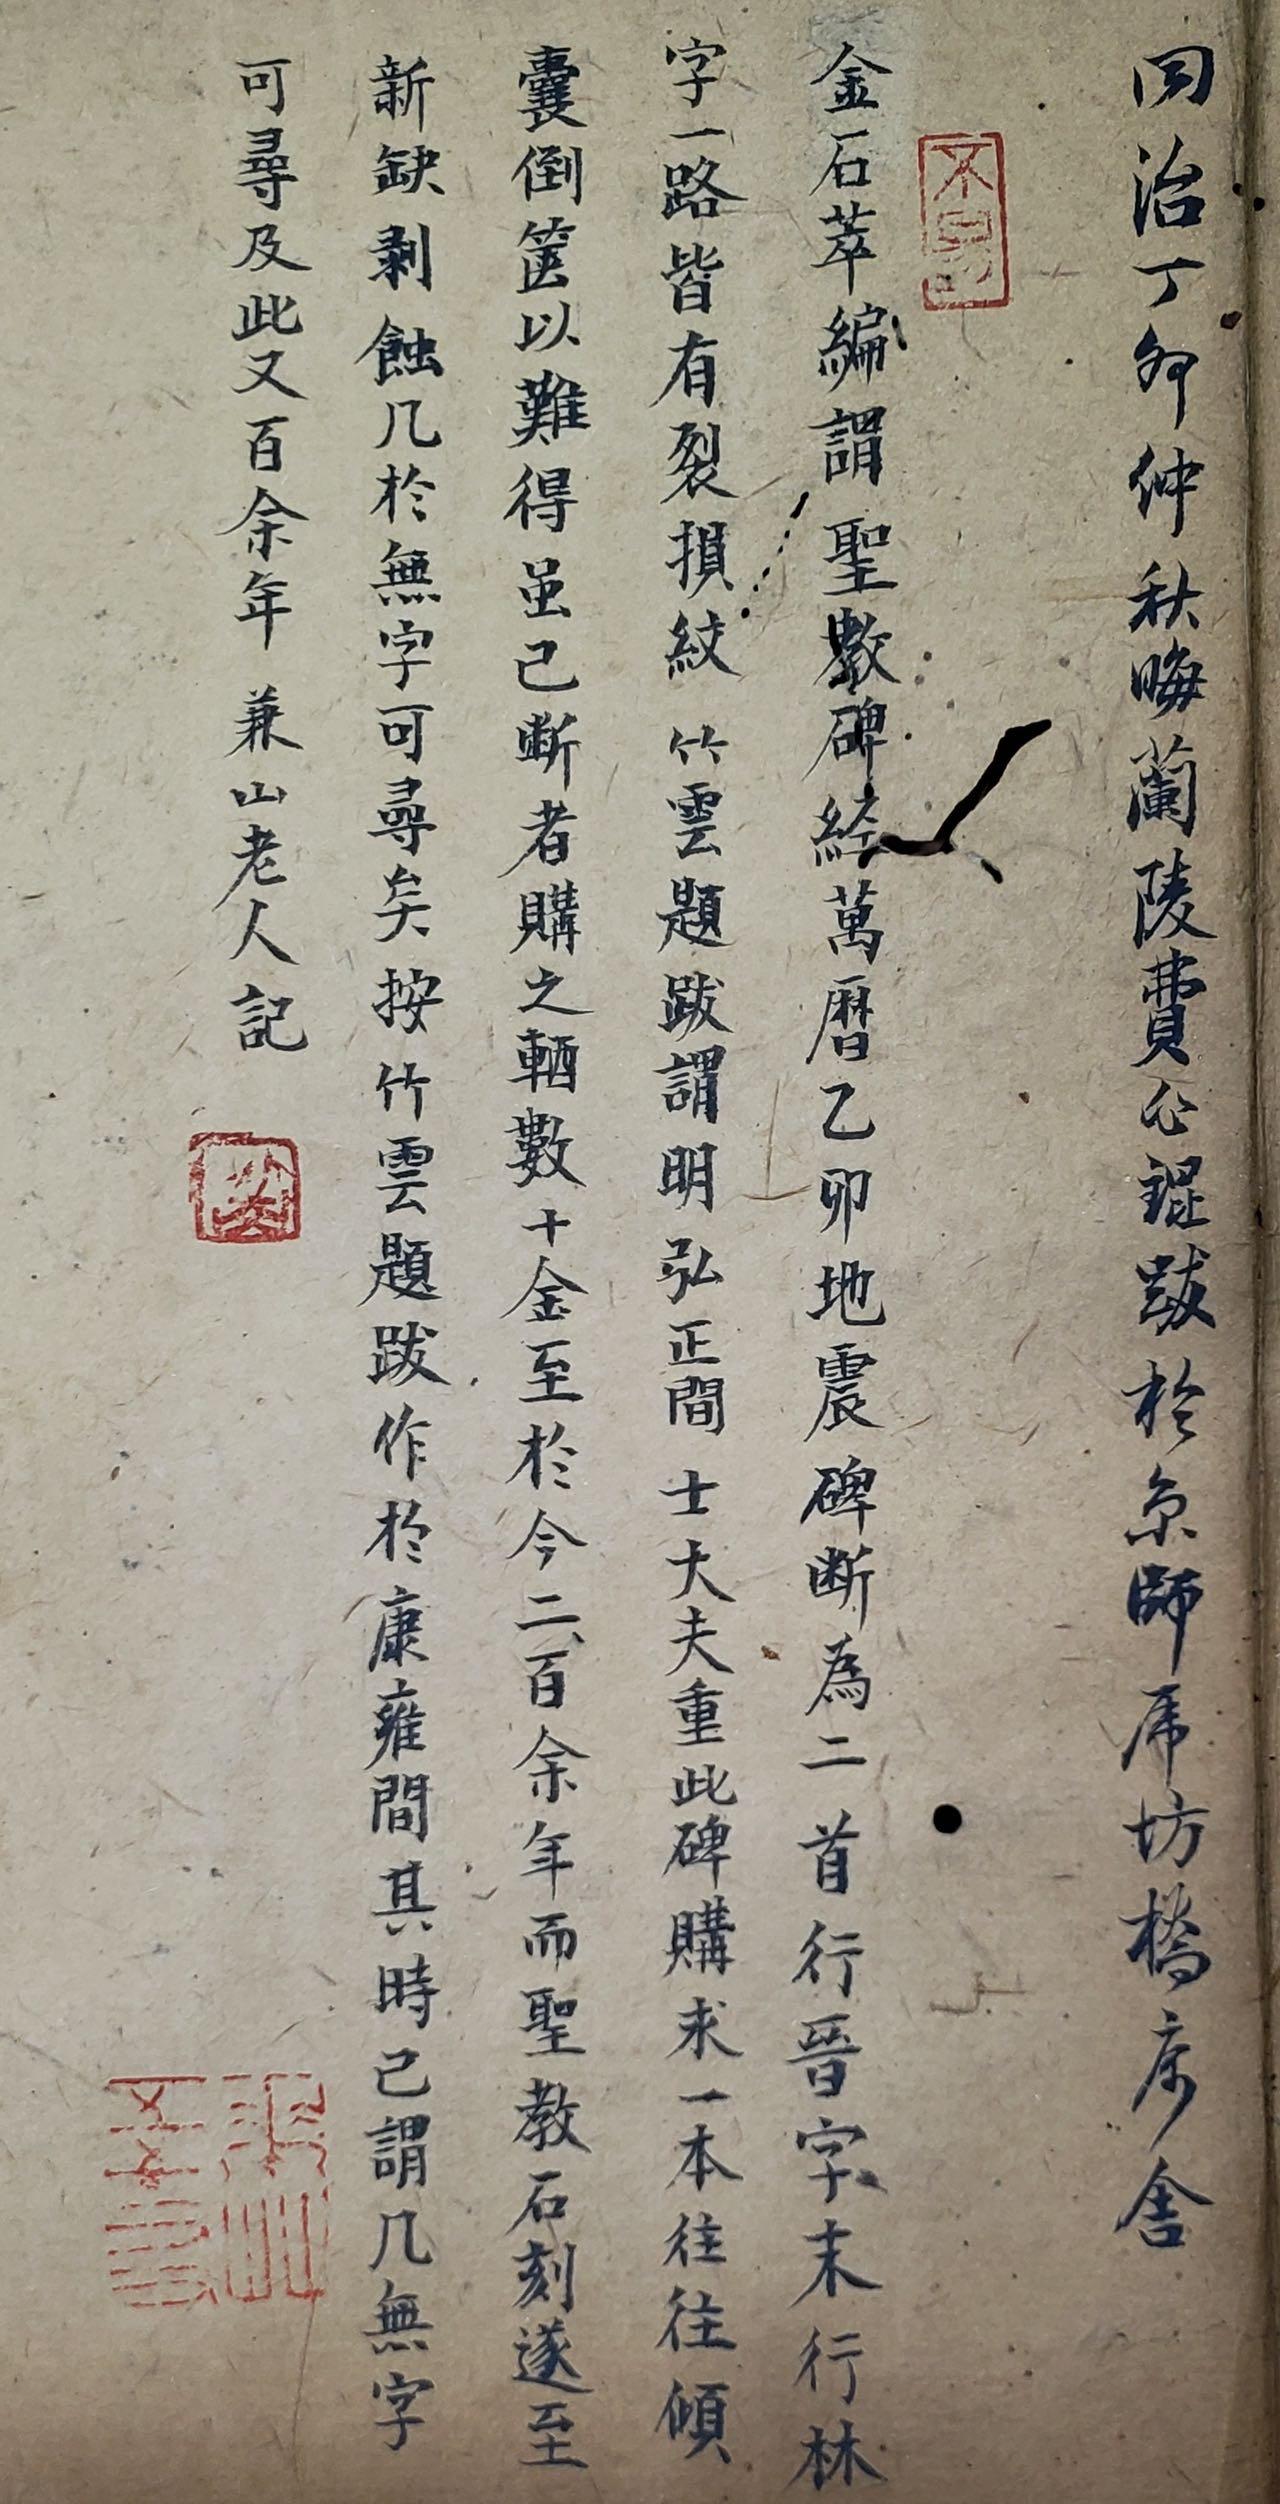 同治丁卯仲秋晦蘭陵費心錕跋於京師虎坊橋序舍
金石萃編謂聖教碑經萬曆乙卯地震碑斷為二首行晉字末行林
字一路皆有裂損紋 竹雲題跋謂明弘正間 士大夫重此碑購求一本往往傾
囊倒篋以難得虽已斷者購之輒數十金至於今二百余年而聖教石刻遂至
新缺剥蝕几於無字可尋矣按竹雲題跋作於康雍間其時已謂几無字
可尋及此又百余年 兼山老人記